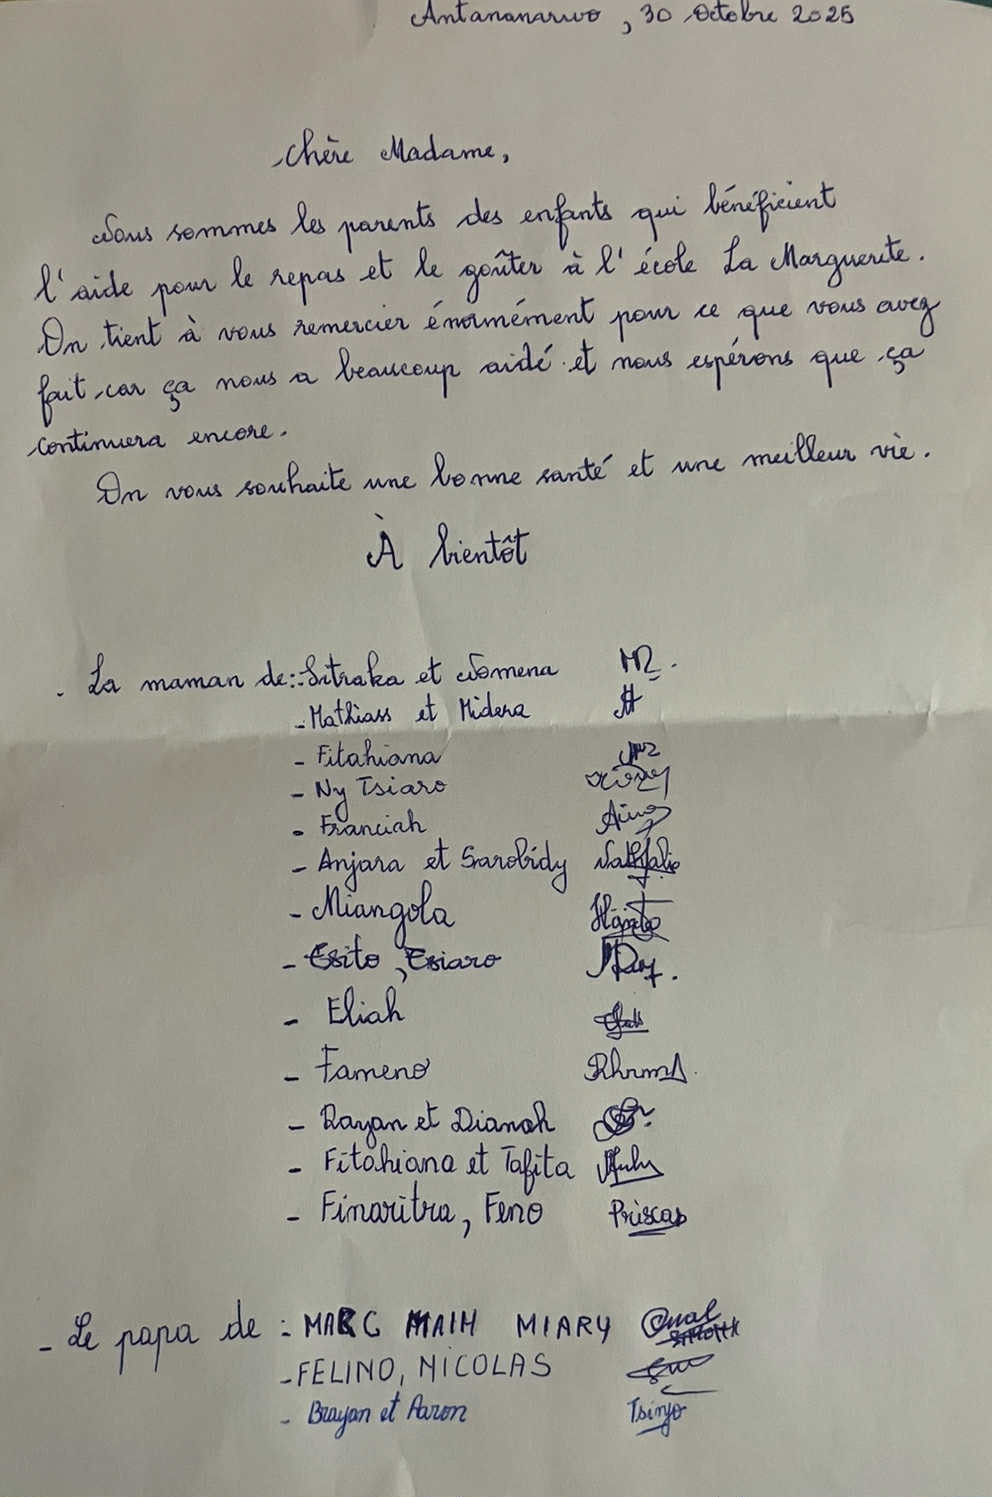 Antananarivo, 30 Octobre 2025
Chère Madame,
Nous sommes les parents des enfants qui bénéficient
l'aide pour le repas et le goûter à l'école La Marguerite.
On tient à vous remercier énormément pour ce que vous avez
fait, car ça nous a beaucoup aidé et nous espérons que ça
continuera encore.
On vous souhaite une bonne santé et une meilleur vie.
À bientôt
- La maman de : - Sitraka et Nomena
- Mathiass et Midera
- Fitahiana
- Ny Tsiaro
- Franciah
- Anjara et Sarobidy Nathalie
- Miangola
- Tsito, Tsiaro
- Eliah
- Fameno
- Rayan et Dianah
- Fitahiana et Tafita
- Finaritra, Feno Priscas
- Le papa de : MARC MAIH MIARY
- FELINO, NICOLAS
- Brayan et Aaron Tsinjo